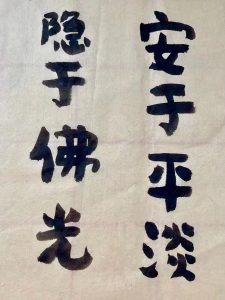 安于平淡
隐于佛光